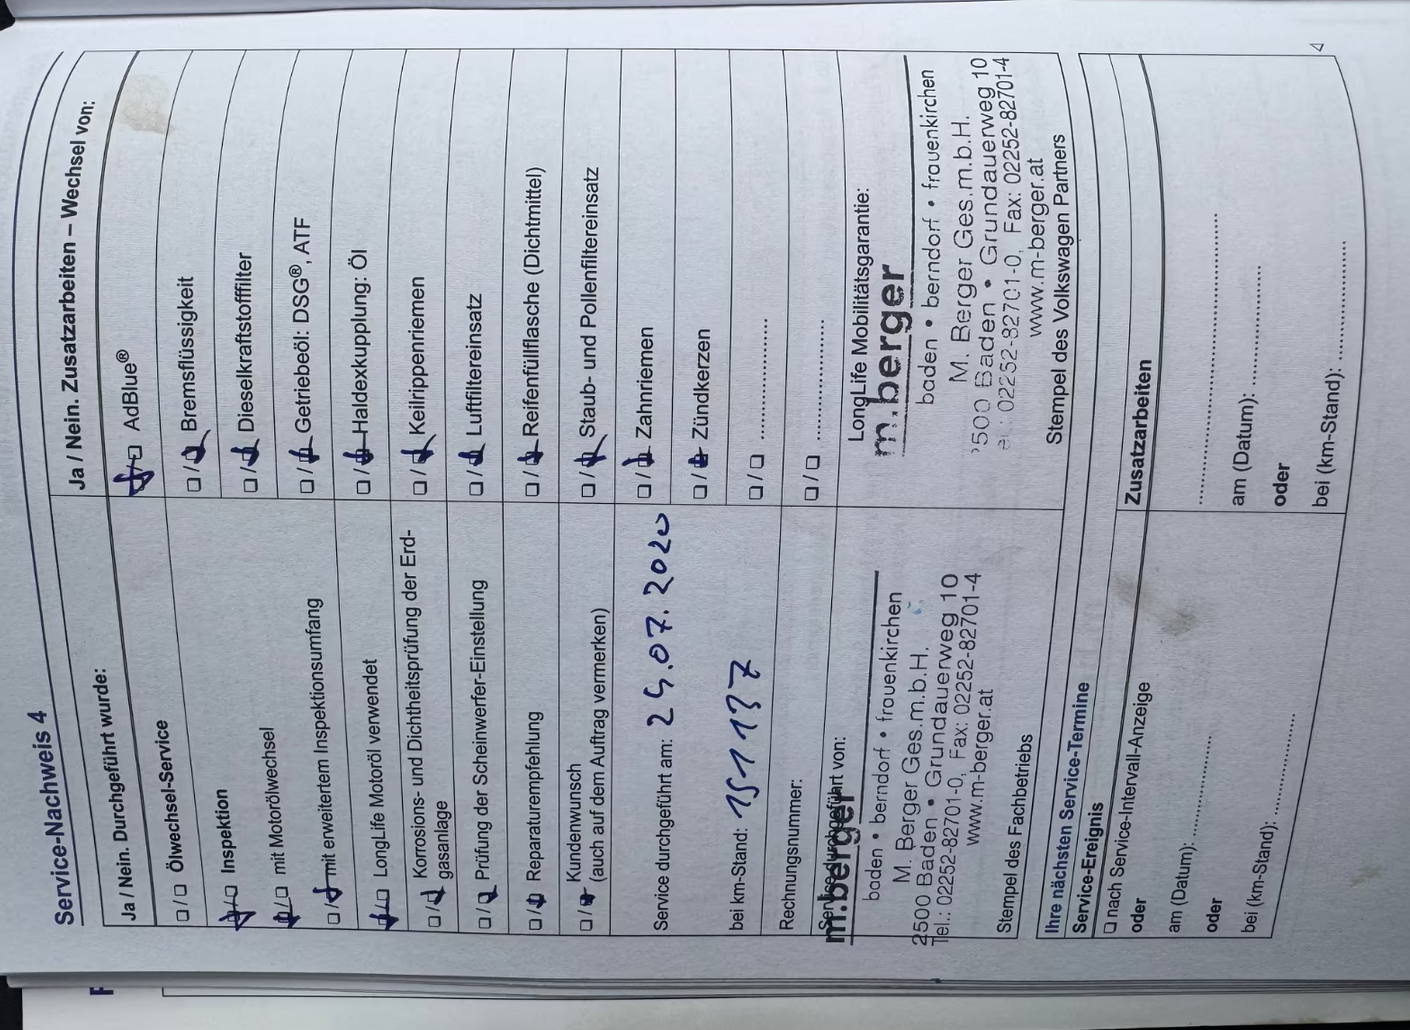 Service-Nachweis 4
Ja / Nein. Durchgeführt wurde:
☐/☐ Ölwechsel-Service
☐/☐ Inspektion
☐/☐ mit Motorölwechsel
☐/☐ mit erweitertem Inspektionsumfang
☐/☐ LongLife Motoröl verwendet
☐/☐ Korrosions- und Dichtheitsprüfung der Erd-
gasanlage
☐/☐ Prüfung der Scheinwerfer-Einstellung
☐/☐ Reparaturempfehlung
☐/☐ Kundenwunsch
(auch auf dem Auftrag vermerken)
Service durchgeführt am: 25.07.2020
bei km-Stand: 151137
Rechnungsnummer:
Service durchgeführt von:
m.berger
baden • berndorf • frauenkirchen
M. Berger Ges.m.b.H.
2500 Baden • Grundauerweg 10
Tel.: 02252-82701-0, Fax: 02252-82701-4
www.m-berger.at
Stempel des Fachbetriebs
Ja / Nein. Zusatzarbeiten – Wechsel von:
☐/☐ AdBlue®
☐/☐ Bremsflüssigkeit
☐/☐ Dieselkraftstofffilter
☐/☐ Getriebeöl: DSG®, ATF
☐/☐ Haldexkupplung: Öl
☐/☐ Keilrippenriemen
☐/☐ Luftfiltereinsatz
☐/☐ Reifenfüllflasche (Dichtmittel)
☐/☐ Staub- und Pollenfiltereinsatz
☐/☐ Zahnriemen
☐/☐ Zündkerzen
☐/☐ ....................
☐/☐ ....................
LongLife Mobilitätsgarantie:
m.berger
baden • berndorf • frauenkirchen
M. Berger Ges.m.b.H.
500 Baden • Grundauerweg 10
el.: 02252-82701-0, Fax: 02252-82701-4
www.m-berger.at
Stempel des Volkswagen Partners
Ihre nächsten Service-Termine
Service-Ereignis
☐ nach Service-Intervall-Anzeige
oder
am (Datum): ....................
oder
bei (km-Stand): ....................
Zusatzarbeiten
....................
am (Datum): ....................
oder
bei (km-Stand): ....................
4